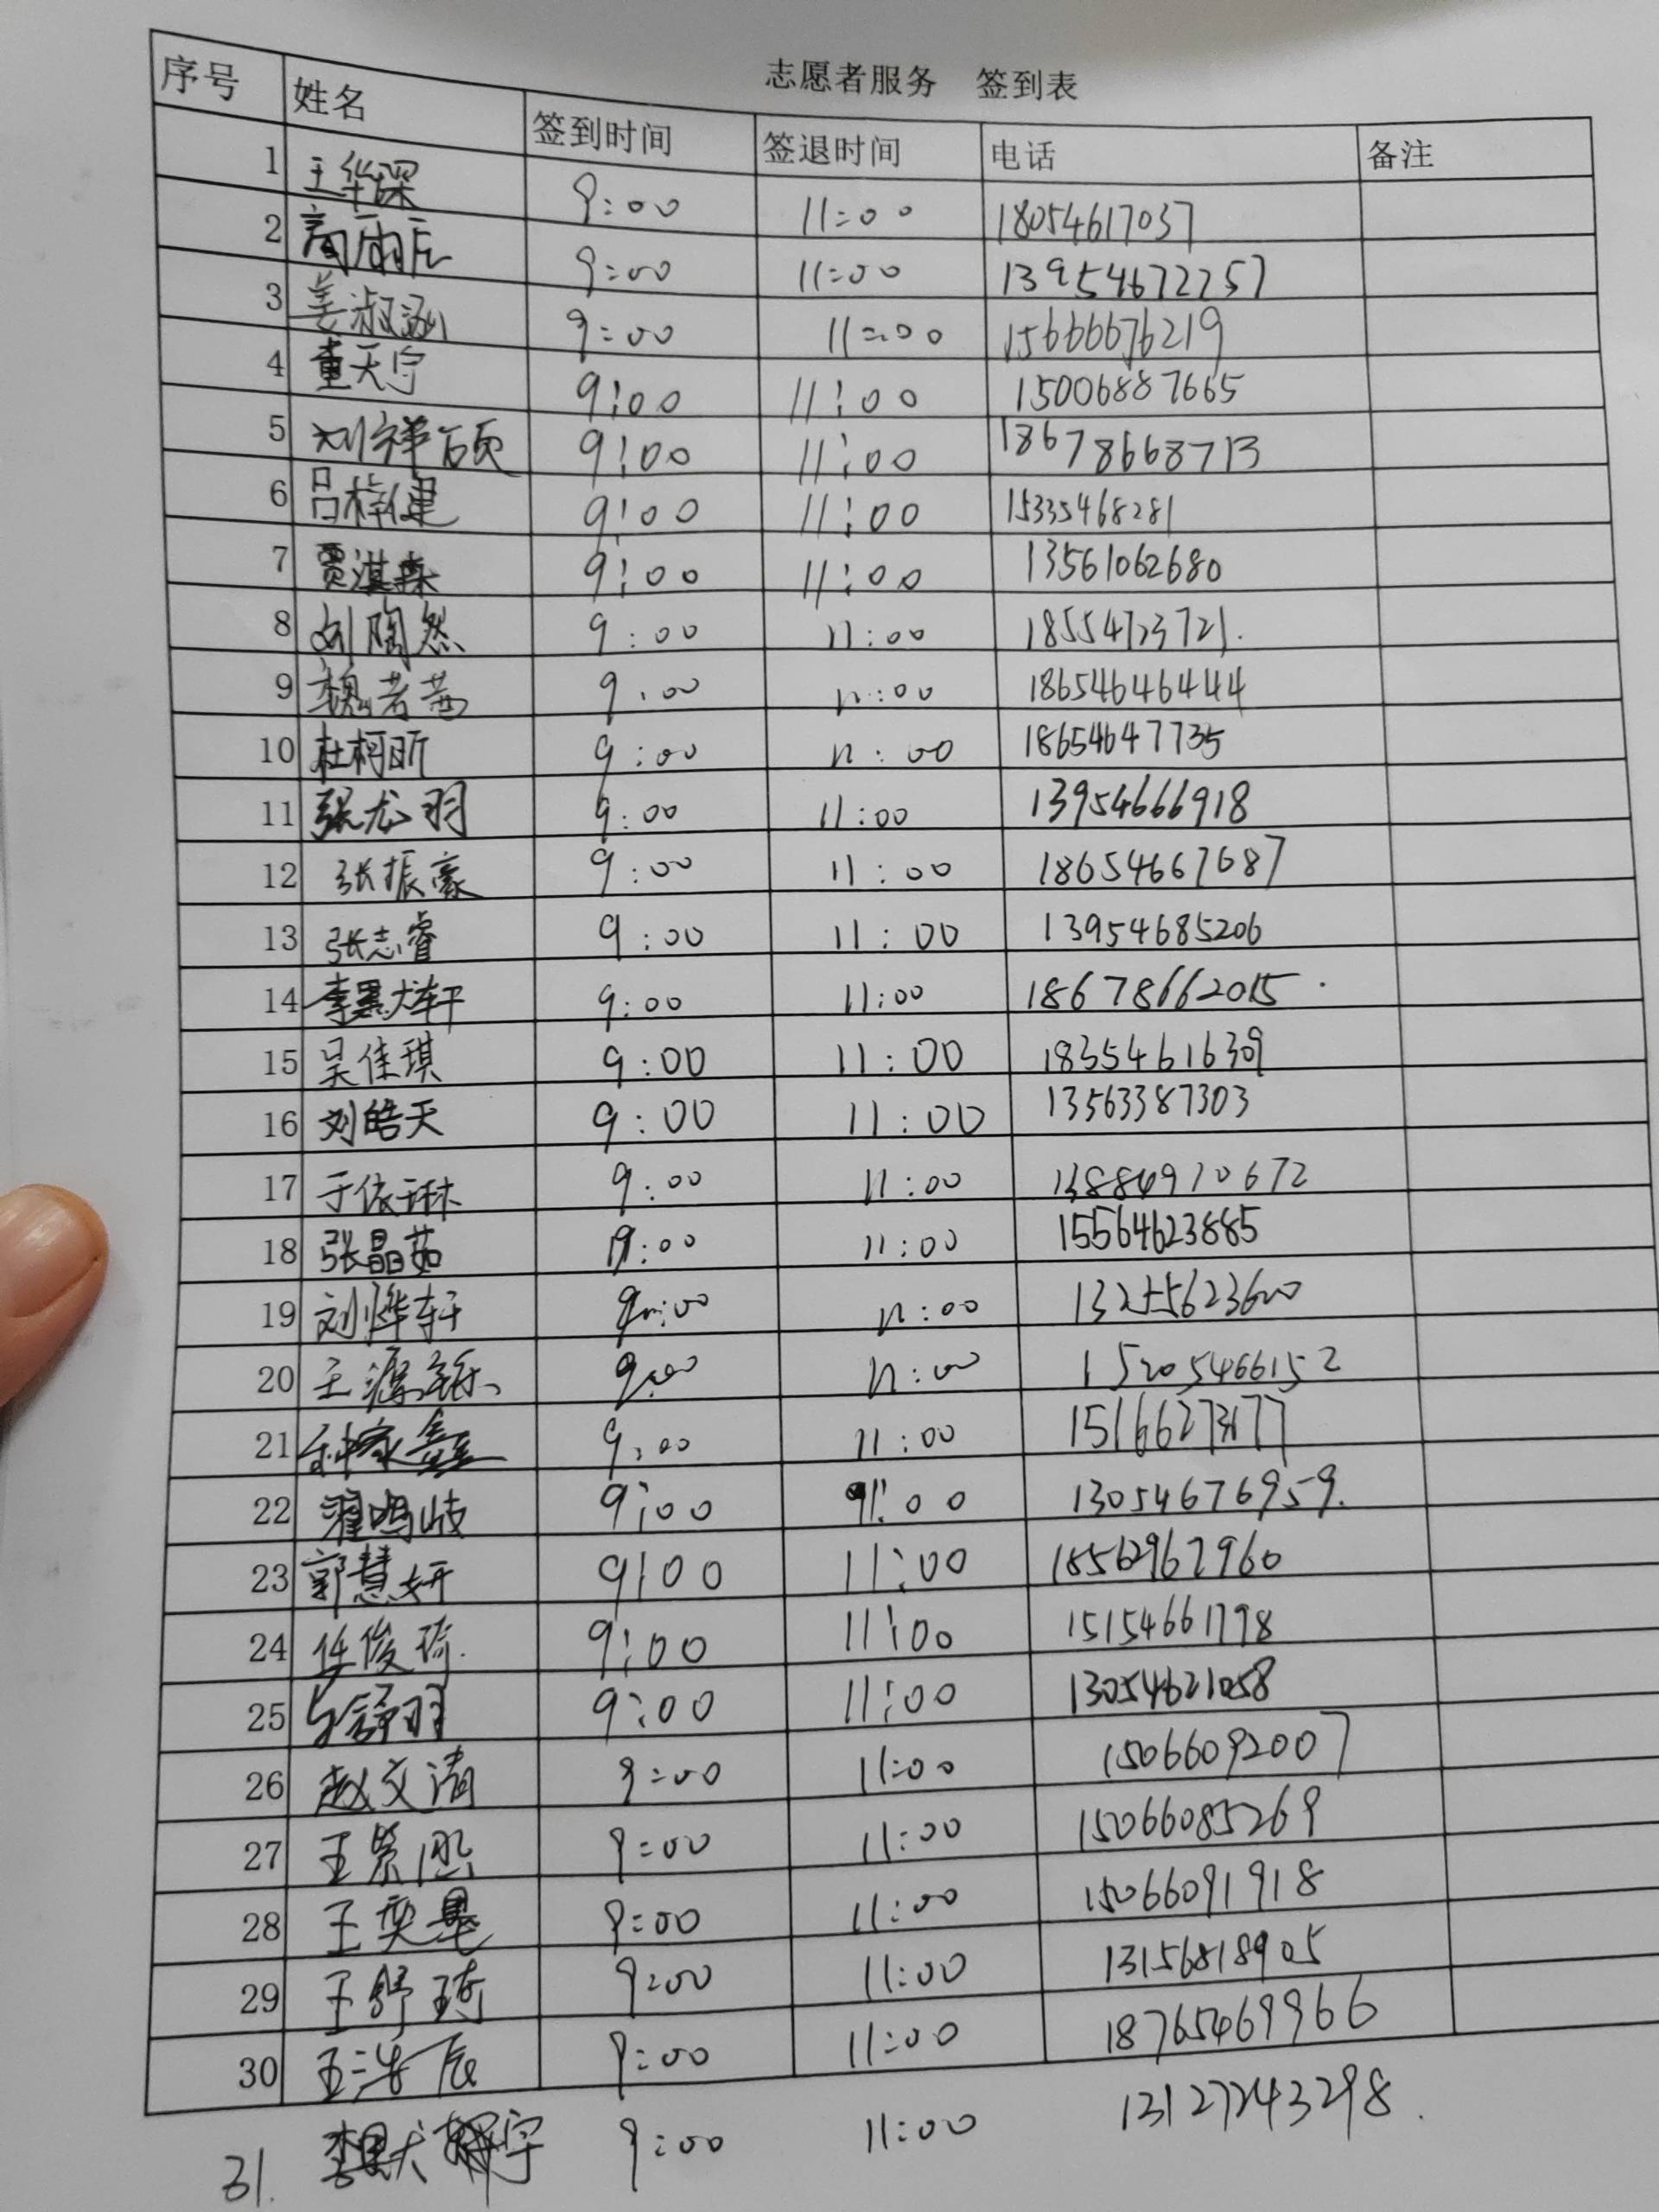 志愿者服务 签到表
序号 姓名 签到时间 签退时间 电话 备注
1 王华琛 9:00 11:00 18054617037
2 高雨辰 9:00 11:00 13954672257
3 姜淑涵 9:00 11:00 15666676219
4 董天宁 9:00 11:00 15006887665
5 刘祥硕 9:00 11:00 18678668713
6 吕梓健 9:00 11:00 15335468281
7 贾淇森 9:00 11:00 13561062680
8 刘陶然 9:00 11:00 18554723721.
9 魏若茜 9:00 11:00 18654646444
10 杜柯昕 9:00 11:00 18654647735
11 张尤羽 9:00 11:00 13954666918
12 张振豪 9:00 11:00 18654667687
13 张志睿 9:00 11:00 13954685206
14 9:00 11:00 18678662015
15 吴佳琪 9:00 11:00 18354616309
16 刘皓天 9:00 11:00 13563387303
17 于依琳 9:00 11:00 13884910672
18 张晶茹 9:00 11:00 15564623885
19 刘烨轩 9:00 11:00 13255623600
20 9:00 11:00 15205466152
21 9:00 11:00
22 翟鸣岐 9:00 11:00 13054676959.
23 郭慧妍 9:00 11:00 18562967960
24 任俊琦 9:00 11:00 15154661798
25 舒羽 9:00 11:00 13054621058
26 赵文清 9:00 11:00 15066092007
27 王 9:00 11:00 15066085269
28 王奕 9:00 11:00 15066091918
29 王舒琦 9:00 11:00 13156818905
30 王浩辰 9:00 11:00 18765469966
31. 宇 9:00 11:00 13127243298.